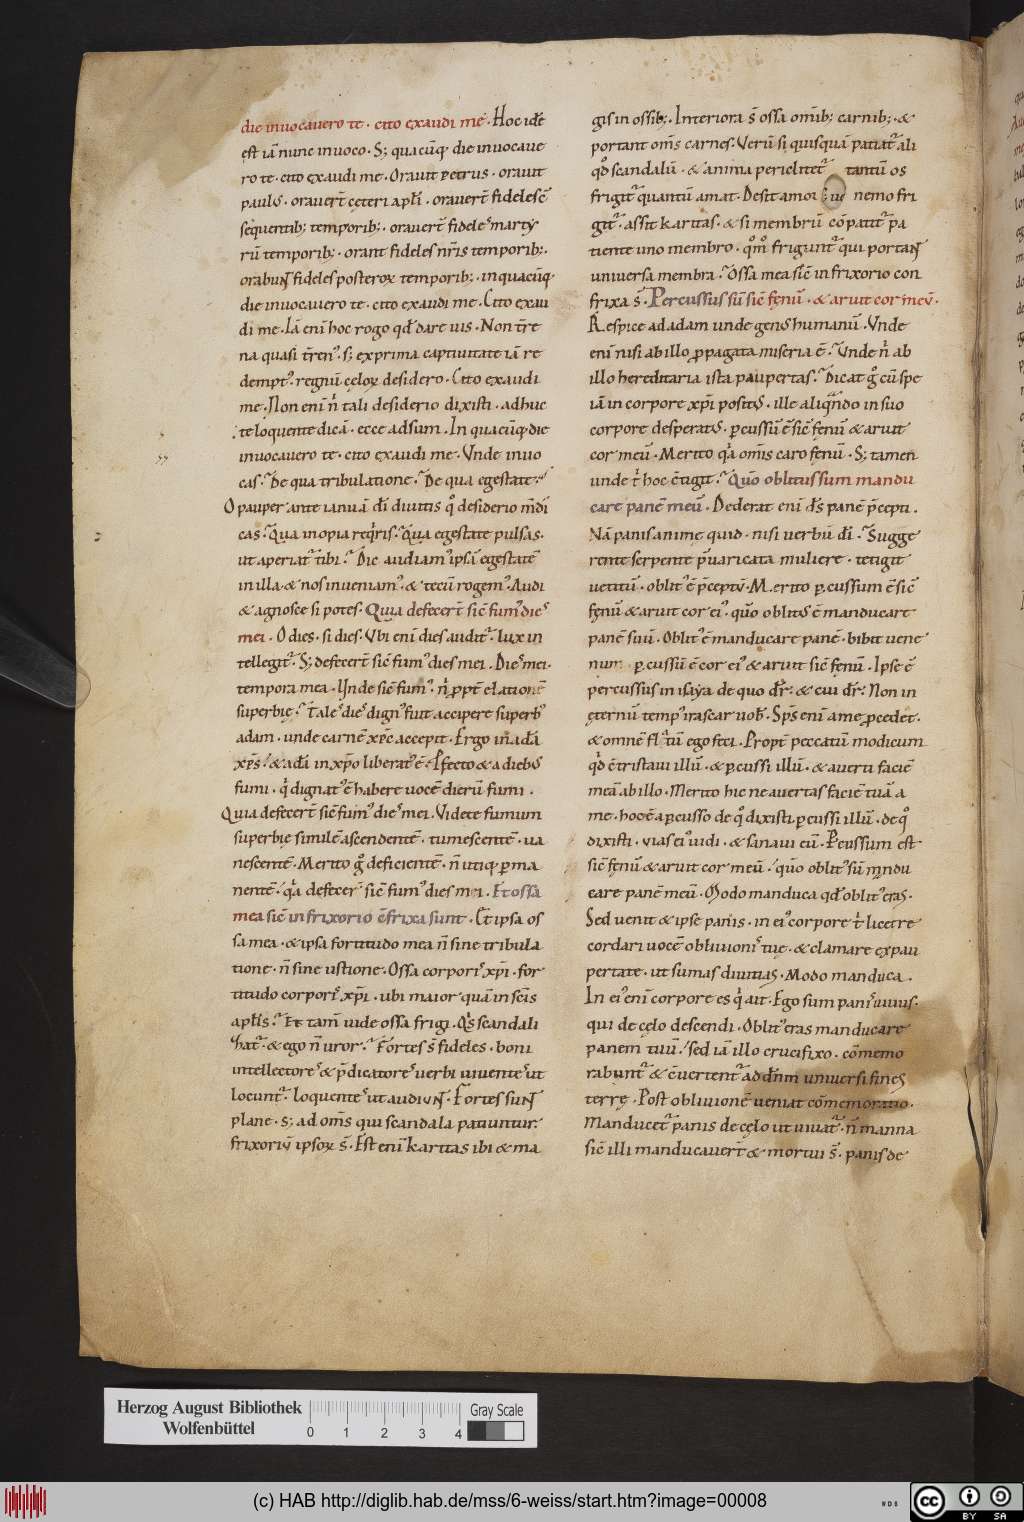 die inuocauero te · cito exaudi me · Hoc idē
est iā nunc inuoco · S; quacūq; die inuocaue
ro te · cito exaudi me · Orauit petrus · orauit
paulꝰ · orauer̄t cęteri apl̄i · orauer̄t fideles cō
sequentib; temporib; · orauer̄t fideles marty
rū temporib; · orant fideles nr̄is temporib; ·
orabunt fideles posteroꝝ temporib; · in quacūq;
die inuocauero te · cito exaudi me · Cito exau
di me · Iā enī hoc rogo qd̄ dare uis · Non t̄re
na quasi t̄renꝰ · s; ex prima captiuitate iā re
demptꝰ · regnū cęloꝝ desidero · Cito exaudi
me · Non enī tali desiderio dixisti · adhuc
te loquente dicā · ecce adsum · In quacūq; die
inuocauero te · cito exaudi me · Unde inuo
cas · De qua tribulatione · De qua egestate ·
O pauper ante ianuā dī diuitis qͦ desiderio m̄di
cas · Qua inopia req̇ris · Qua egestate pulsas ·
ut aperiat᷑ tibi · Dic · audiamꝰ ipsā egestatē
in illa · & nos inueniamꝰ · & tecū rogemꝰ · Audi
& agnosce si potes · Quia defecer̄t sic̄ fumꝰ dies
mei · O dies · si dies · Ubi enī dies audit᷑ · lux in
tellegit᷑ · S; defecer̄t sic̄ fumꝰ dies mei · Dies mei ·
tempora mea · Unde sic̄ fumꝰ · n̄ ꝓpt̄ elationē
superbię · Tales dies dignꝰ fuit accipere superbꝰ
adam · unde carnē xp̄c accepit · Ergo in adā
xp̄s · & adā in xp̄o liberatꝰ ē · Pfecto & a diebꝰ
fumi · q̇ dignatꝰ ē habere uocē dierū fumi ·
Quia defecer̄t sic̄ fumꝰ dies mei · Videte fumum
superbię similē ascendentē · tumescentē · ua
nescentē · Merito gͦ deficientē · n̄ utiq; ꝑma
nentē · qͣa defecer̄ sic̄ fumꝰ dies mei · Et ossa
mea sic̄ in frixorio cōfrixa sunt · Et ipsa os
sa mea · & ipsa fortitudo mea n̄ sine tribula
tione · n̄ sine ustione · Ossa corporis xp̄i · for
titudo corporis xp̄i · ubi maior quā in scīs
apl̄is · Et tam̄ uide ossa frigi · Qͥs scandali
zat᷑ · & ego n̄ uror · Fortes s̄ fideles · boni
intellectores & p̄dicatores uerbi uiuentes ut
locunt᷑ · loquentes ut audiunt · Fortes sunt
plane · s; ad om̄s qui scandala patiuntur
frixoriū ipsoꝝ s̄ · Est enī karitas ibi & ma
gis in ossib; · Interiora s̄ ossa om̄ib; carnib; · &
portant om̄s carnes · Verū si quisquā patiat᷑ ali
qd̄ scandalū · & anima periclitet᷑ tantū os
frigit᷑ quantū amat · Desit amor nemo fri
git᷑ · assit karitas · & si membrū cōpatit᷑ pa
tiente uno membro · qͦmͦ frigunt᷑ qui portant
uniuersa membra · Ossa mea sic̄ in frixorio con
frixa s̄ · Percussus sū sic̄ fęnū · & aruit cor meū ·
Respice ad adam unde genꝰ humanū · Unde
enī nisi ab illo ꝓpagata miseria ē · Unde n̄ ab
illo hereditaria ista paupertas · Dicat gͦ cū spe
iā in corpore xp̄i positꝰ · ille aliqͣndo in suo
corpore desperatꝰ · ꝑcussū ē sic̄ fęnū & aruit
cor meū · Merito qͣa om̄is caro fęnū · S; tamen
unde t̄ hoc cōtigit · Quō oblitus sum mandu
care panē meū · Dederat enī dꝰs panē p̄cepti ·
Nā panis animę quid · nisi uerbū dī · Sugge
rente serpente p̄uaricata muliere · tetigit
uetitū · oblitꝰ ē p̄ceptū · Merito ꝑcussum ē sic̄
fęnū & aruit cor eiꝰ · quō oblitꝰ ē manducare
panē suū · Oblitꝰ ē manducare panē · bibit uene
num · ꝑcussū ē cor eiꝰ & aruit sic̄ fęnū · Ipse ē
percussus in isaya de quo dr̄ · & cui dr̄ · Non in
ęternū tempꝰ irascar uob̄ · Sps̄ enī a me ꝓcedet ·
& omnē flatū ego feci · Propt̄ peccatum modicum
qd̄ cōtristaui illū · & ꝑcussi illū · & auerti faciē
meā ab illo · Merito hic ne auertas faciē tuā a
me · hoc ē a ꝑcusso de qͦ dixisti ꝑcussi illū · de qͦ
dixisti · uias eiꝰ uidi · & sanaui eū · Pcussum est
sic̄ fęnū & aruit cor meū · quō oblitꝰ sū m̄ndu
care panē meū · Modo manduca qd̄ oblitꝰ eras ·
Sed uenit & ipse panis · in eiꝰ corpore t̄ licet re
cordari uocē obliuionis tuę · & clamare ex pau
pertate · ut sumas diuitias · Modo manduca ·
In eiꝰ enī corpore es q̇ ait · Ego sum panis uiuus ·
qui de cęlo descendi · Oblitꝰ eras manducare
panem tuū · sed iā illo crucifixo · cōmemo
rabunt᷑ & cōuertent᷑ ad dn̄m uniuersi fines
terrę · Post obliuionē ueniat cōmemoratio ·
Manducet᷑ panis de cęlo ut uiuat᷑ · n̄ manna
sic̄ illi manducauer̄t & mortui s̄ · panis de
Herzog August Bibliothek
Wolfenbüttel
0 1 2 3 4
Gray Scale
(c) HAB http://diglib.hab.de/mss/6-weiss/start.htm?image=00008
cc BY SA